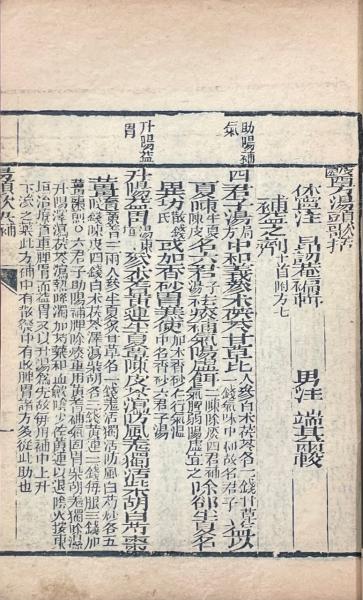 助陽補氣
升陽益胃
湯頭歌括
休寧汪昂訒菴編輯　男汪端其兩較
補益之劑 十首附方七
四君子湯 局方 中和義參朮茯苓甘草比 人參白朮茯苓各二錢甘草一錢氣味中和故名君子 益以
夏陳 半夏陳皮 名六君 六君子湯 祛痰補氣陽虛餌 二陳除痰四君補氣脾弱陽虛宜之 除卻半夏名
異功 錢氏異功散 或加香砂胃寒使 加木香砂仁行氣溫中名香砂六君子湯
升陽益胃 湯東垣 參朮耆黃連半夏草陳皮苓瀉防風羌獨活柴胡白芍棗
薑隨 黃耆二兩人參半夏炙甘草各一兩羌活獨活防風白芍炒各五
錢陳皮四錢白朮茯苓澤瀉柴胡各三錢黃連二錢每服三錢加
薑棗煎○六君子助陽補脾除痰重用黃耆補氣固胃柴胡羌獨除濕
升陽澤瀉茯苓瀉熱降濁加芍藥和血歛陰少佐黃連以退陰火按東
垣治療首重脾胃而益胃又以升陽為先故每用補中上升
下滲之藥此方補中有散發中有收脾胃諸方多從此仿也